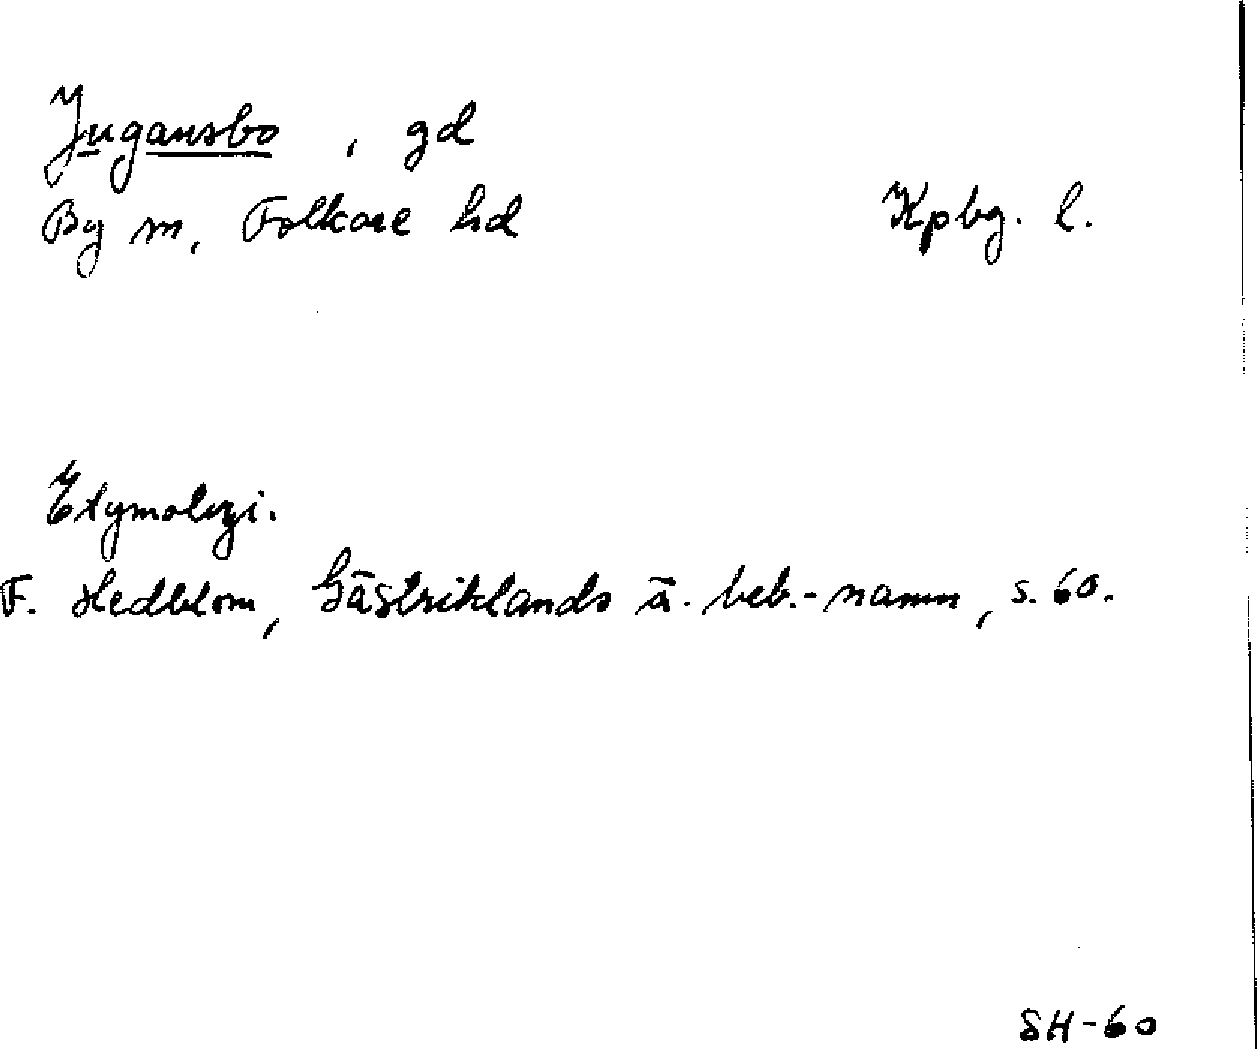 Jugansbo, gd
By sn, Folkare hd Kpbg. l.
Etymologi.
F. Hedblom, Gästriklands ä. beb.-namn, s. 60.
SH-60